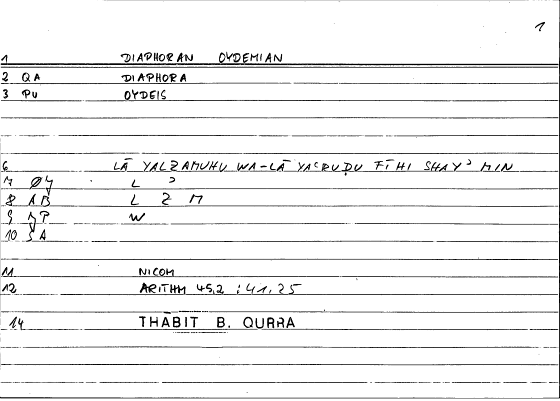 1
1 DIAPHORAN OYDEMIAN
2 QA DIAPHORA
3 PU OYDEIS
6 LĀ YALZAMUHU WA-LĀ YAʿRUḌU FĪHI SHAYʾ MIN
7 ØY L ʾ
8 AB L Z M
9 P W
10 SA
11 NICOM
12 ARITHM 45,2 : 41.25
14 THĀBIT B. QURRA